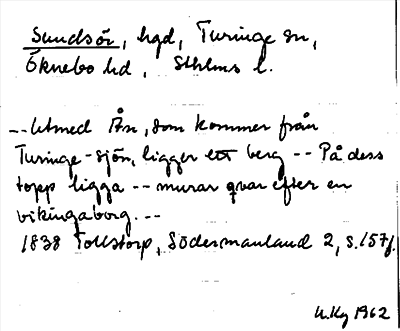 Sundsör, hgd, Turinge sn,
Öknebo hd, Sthlms l.
-- Utmed Ån, som kommer från
Turinge-sjön, ligger ett berg -- På dess
topp ligga -- murar qvar efter en
vikingaborg. --
1838 Tollstorp, Södermanland 2, s. 157f.
U.Kg 1962